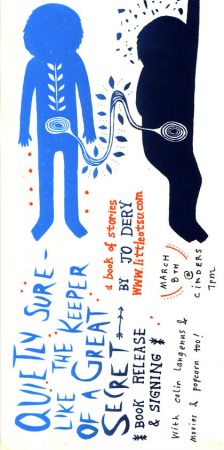 QUIETLY SURE -
LIKE THE KEEPER
OF A GREAT
SECRET
a book of stories
BY JO DERY
www.littleotsu.com
BOOK RELEASE
& SIGNING
MARCH
8TH
@
CINDERS
1pm
With colin langenus &
Movies & popcorn too!